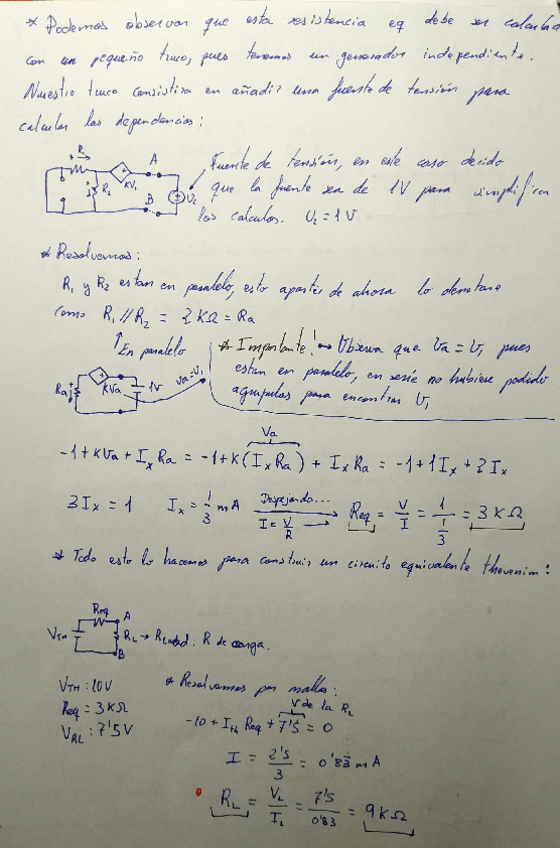 * Podemos observar que esta resistencia eq debe ser calculada
con un pequeño truco, pues tenemos un generador independiente.
Nuestro truco consistira en añadir una fuente de tensión para
calcular las dependencias:
R
A
Fuente de tensión, en este caso decido
KV₁
R₂
U₂
que la fuente sea de 1V para simplificar
B
los calculos. U₂ = 1V
* Resolvamos:
R₁ y R₂ estan en paralelo, esto apartir de ahora lo denotare
como R₁ // R₂ = 2 KΩ = Ra
En paralelo
* Importante! → Observa que Va = V₁ pues
estan en paralelo, en serie no hubiese podido
agruparlas para encontrar V₁
Ra
KVa
1V
Va = V₁
Va
-1 + KVa + Iₓ Ra = -1 + K (Iₓ Ra) + Iₓ Ra = -1 + 1Iₓ + 2Iₓ
3Iₓ = 1 Iₓ = 1/3 mA Despejando... I = V/R Req = V/I = 1/(1/3) = 3 KΩ
* Todo esto lo hacemos para construir un circuito equivalente thevenim:
Req
A
VTH
RL → RLoad. R de carga.
B
VTH : 10V
Req = 3 KΩ
VRL : 7'5 V
* Resolvamos por mallas:
V de la RL
-10 + ITH Req + 7'5 = 0
I = 2'5/3 = 0'83 mA
RL = VL/IL = 7'5/0'83 = 9 KΩ